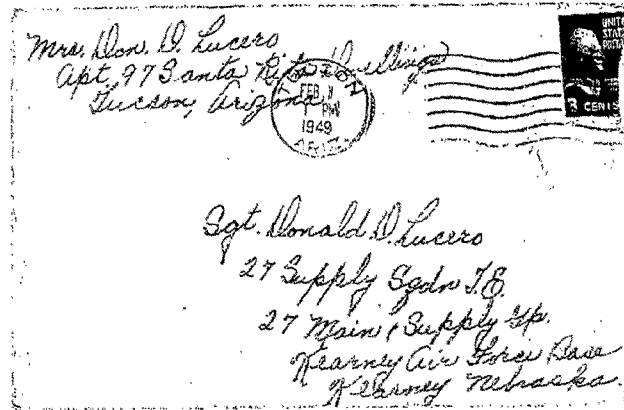 Mrs. Don. D. Lucero
Apt. 97 Santa Rita Dwellings
Tucson, Arizona
TUCSON
FEB
PM
1949
ARIZ.
UNITED
STATES
POSTAGE
3 CENTS
Sgt. Donald D. Lucero
27 Supply Sqdn T.E.
27 Main & Supply Gp.
Kearney Air Force Base
Kearney Nebraska.